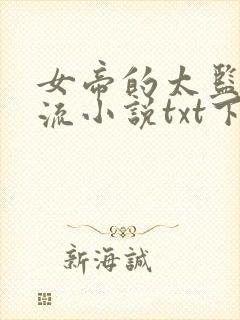 女帝的太监
流小说txt下
新海誠